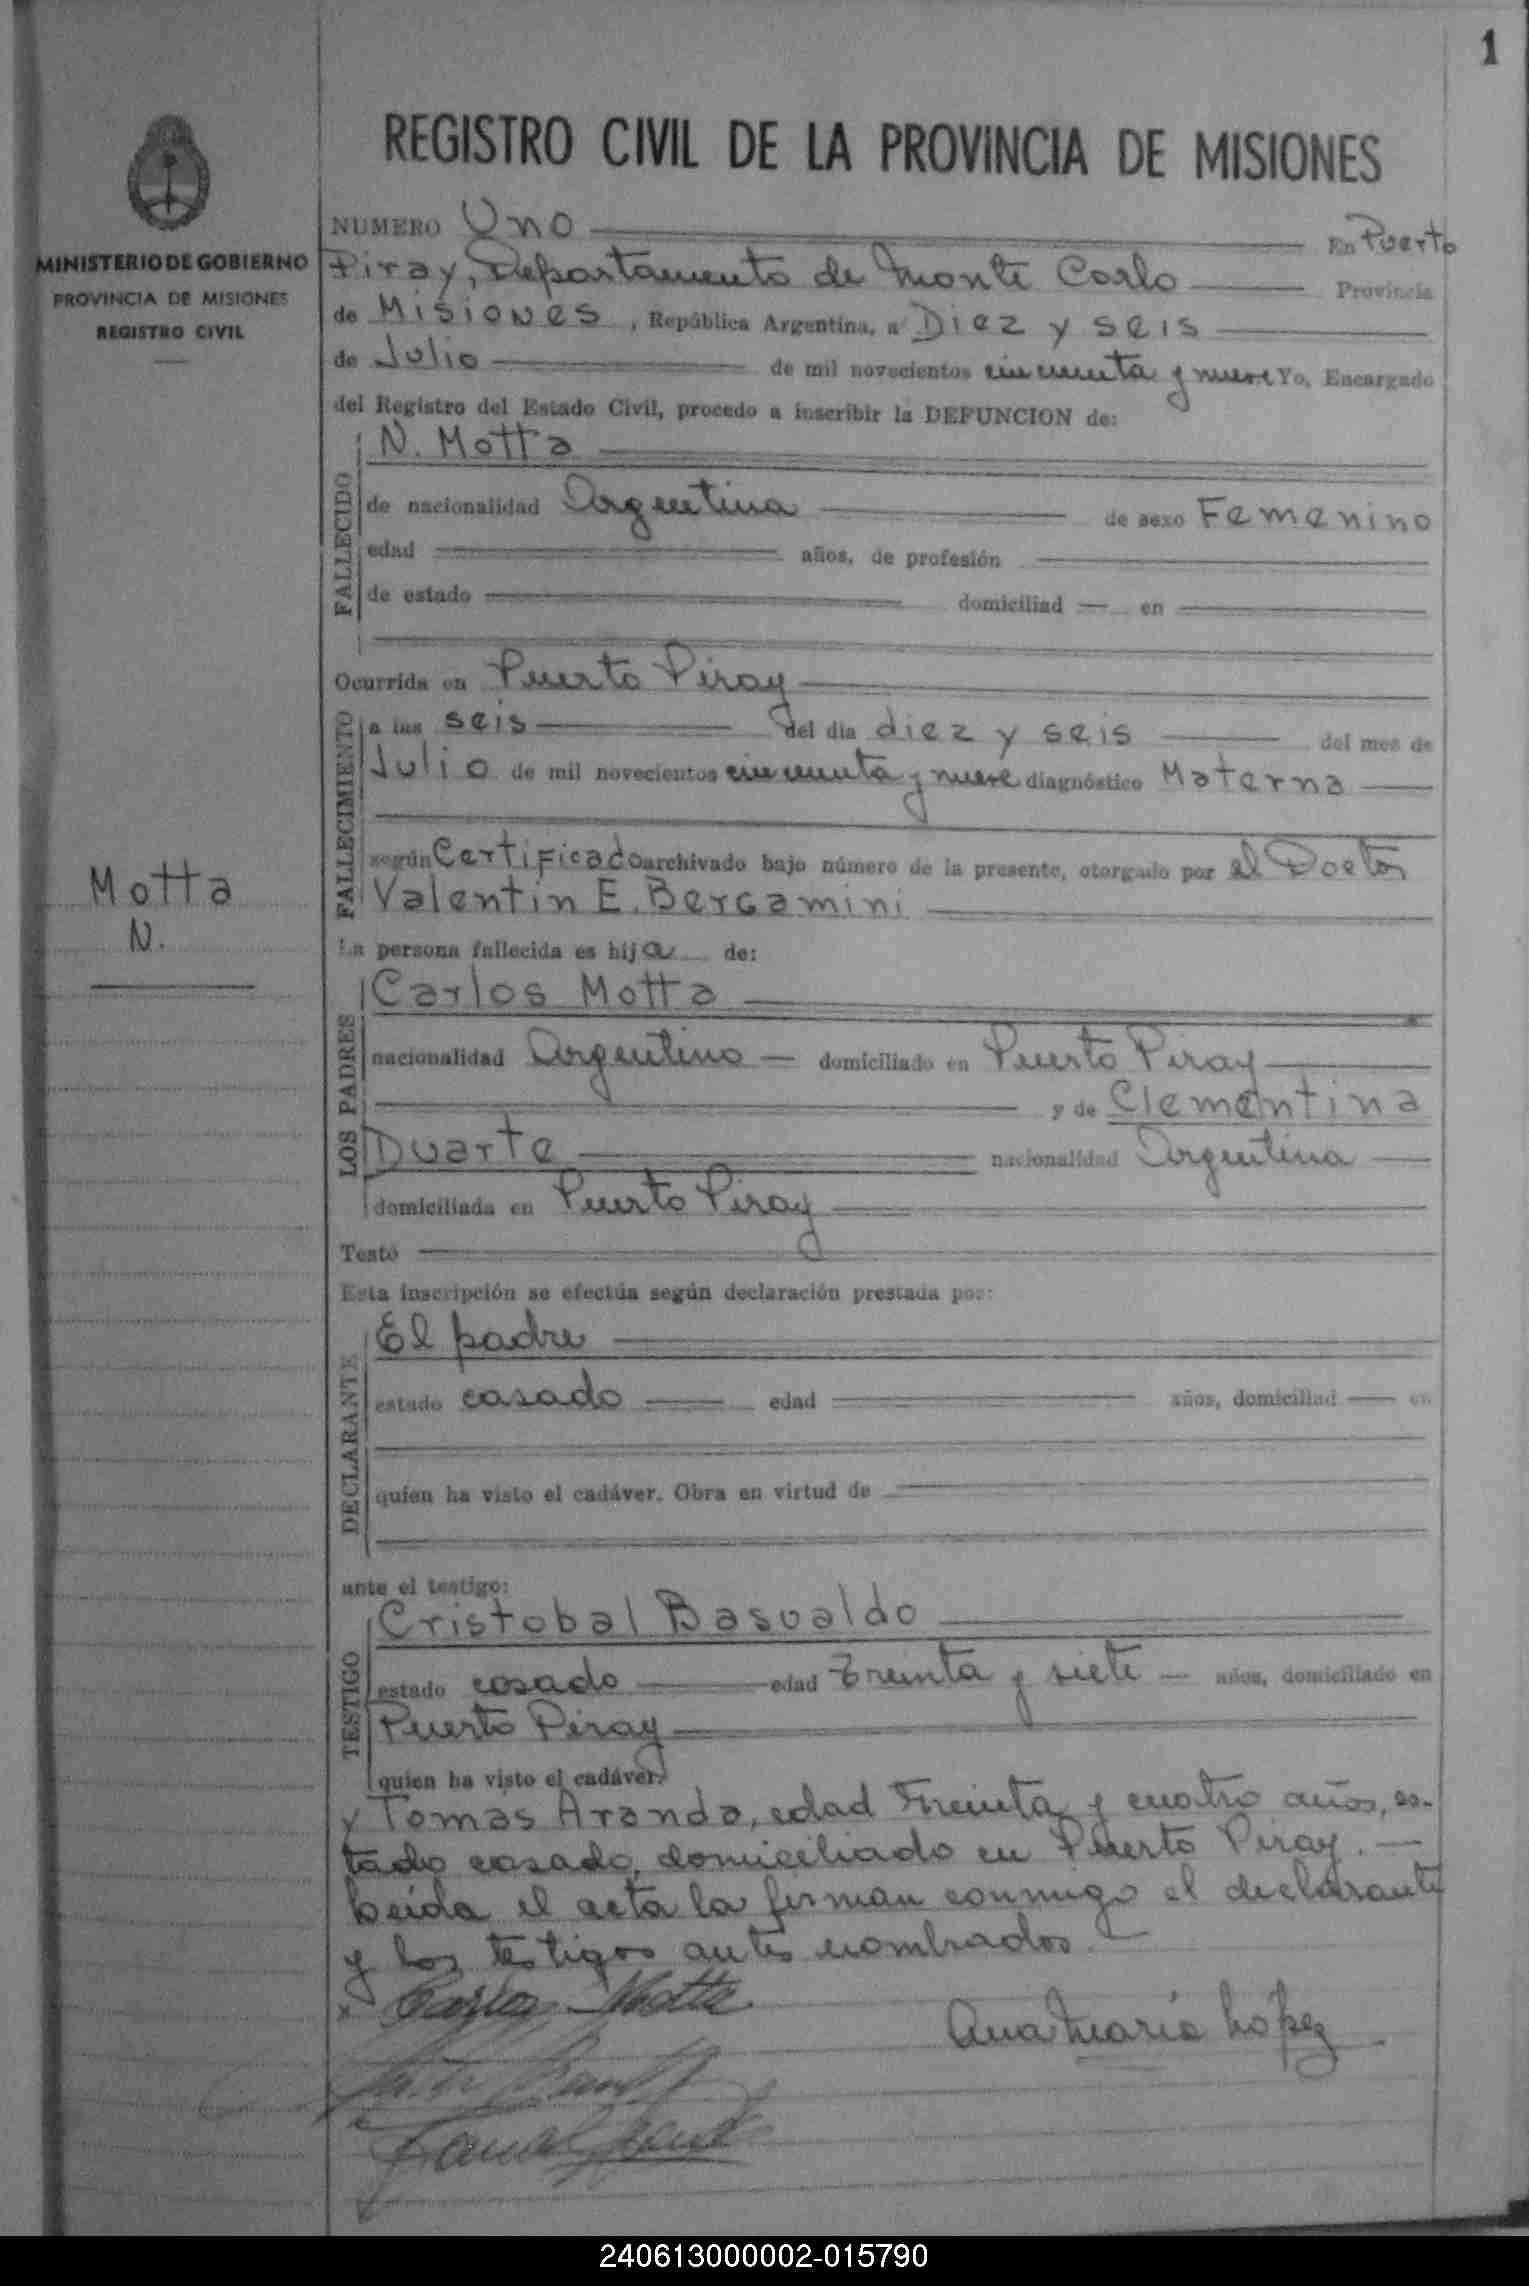 1
REGISTRO CIVIL DE LA PROVINCIA DE MISIONES
MINISTERIO DE GOBIERNO
PROVINCIA DE MISIONES
REGISTRO CIVIL
NUMERO Uno En Puerto
Piray, Departamento de Monte Carlo Provincia
de Misiones, República Argentina, a Diez y seis
de Julio de mil novecientos cincuenta y nueve Yo, Encargado
del Registro del Estado Civil, procedo a inscribir la DEFUNCION de:
N. Motta
FALLECIDO
de nacionalidad Argentina de sexo Femenino
edad años, de profesión
de estado domiciliad en
Ocurrida en Puerto Piray
FALLECIMIENTO
a las seis del día diez y seis del mes de
Julio de mil novecientos cincuenta y nueve diagnóstico Materna
según Certificado archivado bajo número de la presente, otorgado por el Doctor
Valentin E. Bergamini
Motta
N.
La persona fallecida es hija de:
LOS PADRES
Carlos Motta
nacionalidad Argentino domiciliado en Puerto Piray
y de Clementina
Duarte nacionalidad Argentina
domiciliada en Puerto Piray
Testó
Esta inscripción se efectúa según declaración prestada por:
DECLARANTE
El padre
estado casado edad años, domiciliad en
quien ha visto el cadáver. Obra en virtud de
ante el testigo:
TESTIGO
Cristobal Basualdo
estado casado edad Treinta y siete años, domiciliado en
Puerto Piray
quien ha visto el cadáver.
y Tomas Aranda, edad Treinta y cuatro años, es-
tado casado, domiciliado en Puerto Piray.
Leida el acta la firman conmigo el declarante
y los testigos antes nombrados.
x Carlos Motta
Ana María López
240613000002-015790